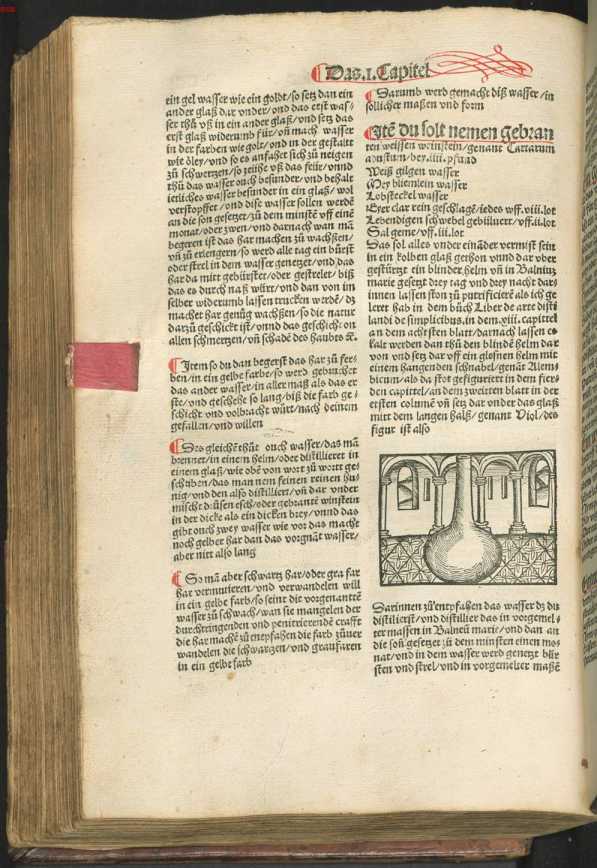 Das .I. Capitel
ein gel wasser wie ein goldt/so setz dan ein
ander glaß dar vnder/vnd das erst was/
ser thů vß in ein ander glaß/vnd setz das
erst glaß widerumb für/vñ mach wasser
in der farben wie golt/vnd in der gestalt
wie öley/vnd so es anfahet sich zů neigen
zů schwertzen/so zeühe vß das feür/vnnd
thů das wasser ouch besunder/vnd behalt
ietliches wasser besinder in ein glaß/wol
verstopffet/vnd dise wasser sollen werdẽ
an die son gesetzet/zů dem minstẽ vff einẽ
monat/oder zwen/vnd darnach wan mã
begeren ist das har machen zů wachßen/
vñ zů erlengern/so werd alle tag ein bürst
oder strel in dem wasser genetzet/vnd das
har da mitt gebürstet/oder gestrelet/biß
das es durch naß würt/vnd dan von im
selber widerumb lassen trucken werdẽ/dz
machet har genůg wachßen/so die natur
darzů geschickt ist/vnnd das geschicht on
allen schmertzen/vñ schadẽ des haubts ⁊c.
¶ Item so du dan begerst das har zů fer/
ben/in ein gelbe farbe/so werd gebrucht
das ander wasser/in aller maß als das er
ste/vnd geschehe so lang/biß die farb ge/
schicht vnd volbracht würt/nach deinem
gefallen/vnd willen
¶ Des gleichẽ thůt ouch wasser/das mã
brennet/in einem helm/oder distillieret in
einem glaß/wie obẽ von wort zů wort ge/
schriben/das man nem feinen reinen hu/
nig/vnd den also distilliert/vñ dar vnder
mischt drůsen esch/oder gebrantẽ winstein
in der dicke als ein dicken brey/vnnd das
gibt ouch zwey wasser wie vor das macht
noch gelber har dan das vorgnãt wasser/
aber nitt also lang
¶ So mã aber schwartz har/oder gra far
har vermutieren/vnd verwandelen will
in ein gelbe farb/so seint die vorgenantẽ
wasser zů schwach/wan sie mangelen der
durchtringenden vnd penitrierendẽ crafft
die har machẽ zů entpfahen die farb zůuer
wandelen die schwartzen/vnd graufaren
in ein gelbe farb
¶ Darumb werd gemacht diß wasser/in
söllicher maßen vnd form
¶ Itẽ du solt nemen gebran
ten weissen weinstein/genant Tartarum
bey .iiii. pfund
Weiß gilgen wasser
Mey bliemlein wasser
Lobsteckel wasser
Eyer clar rein geschlagẽ/iedes vff .viii. lot
Lebendigen schwebel gebüluert/vff .ii. lot
Sal geme/vff .iii. lot
Das sol alles vnder einãder vermist sein
in ein kolben glaß gethon vnnd dar vber
gestürtzt ein blinder helm vñ in Balniuz
marie gesetzt drey tag vnd drey nacht dar
innen lassen ston zů putrificierẽ als ich ge
leret hab in dem bůch Liber de arte disti
landi de simplicibus in dem .xiii. capittel
an dem achtsten blatt/darnach lassen es
kalt werden dan thů den blindẽ helm dar
von vnd setz dar vff ein glesnen helm mit
einem hangenden schnabel/genãt Alem/
bicum/als da stot gefiguriert in dem fier/
den capittel/an dem zweitten blatt in der
ersten colunẽ vñ setz dar vnder das glaß
mitt dem langen halß/genant Viol/des
figur ist also
Darinnen zů entpfahen das wasser dz du
distilierst/vnd distillier das in vorgemel/
ter massen in Balneũ marie/vnd dan an
die soñ gesetzet zů dem minsten einen mo/
nat/vnd in dem wasser werd genetzt bür
sten vnd strel/vnd in vorgemelter maßẽ